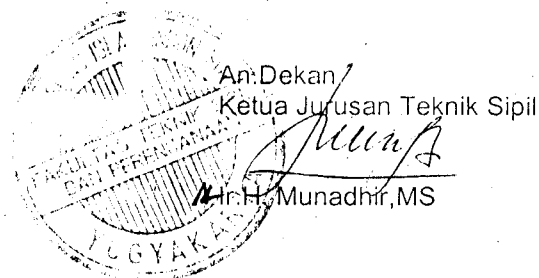 An.Dekan
Ketua Jurusan Teknik Sipil
Ir.H. Munadhir,MS
FAKULTAS TEKNIK
DAN PERENCANAAN
YOGYAKARTA